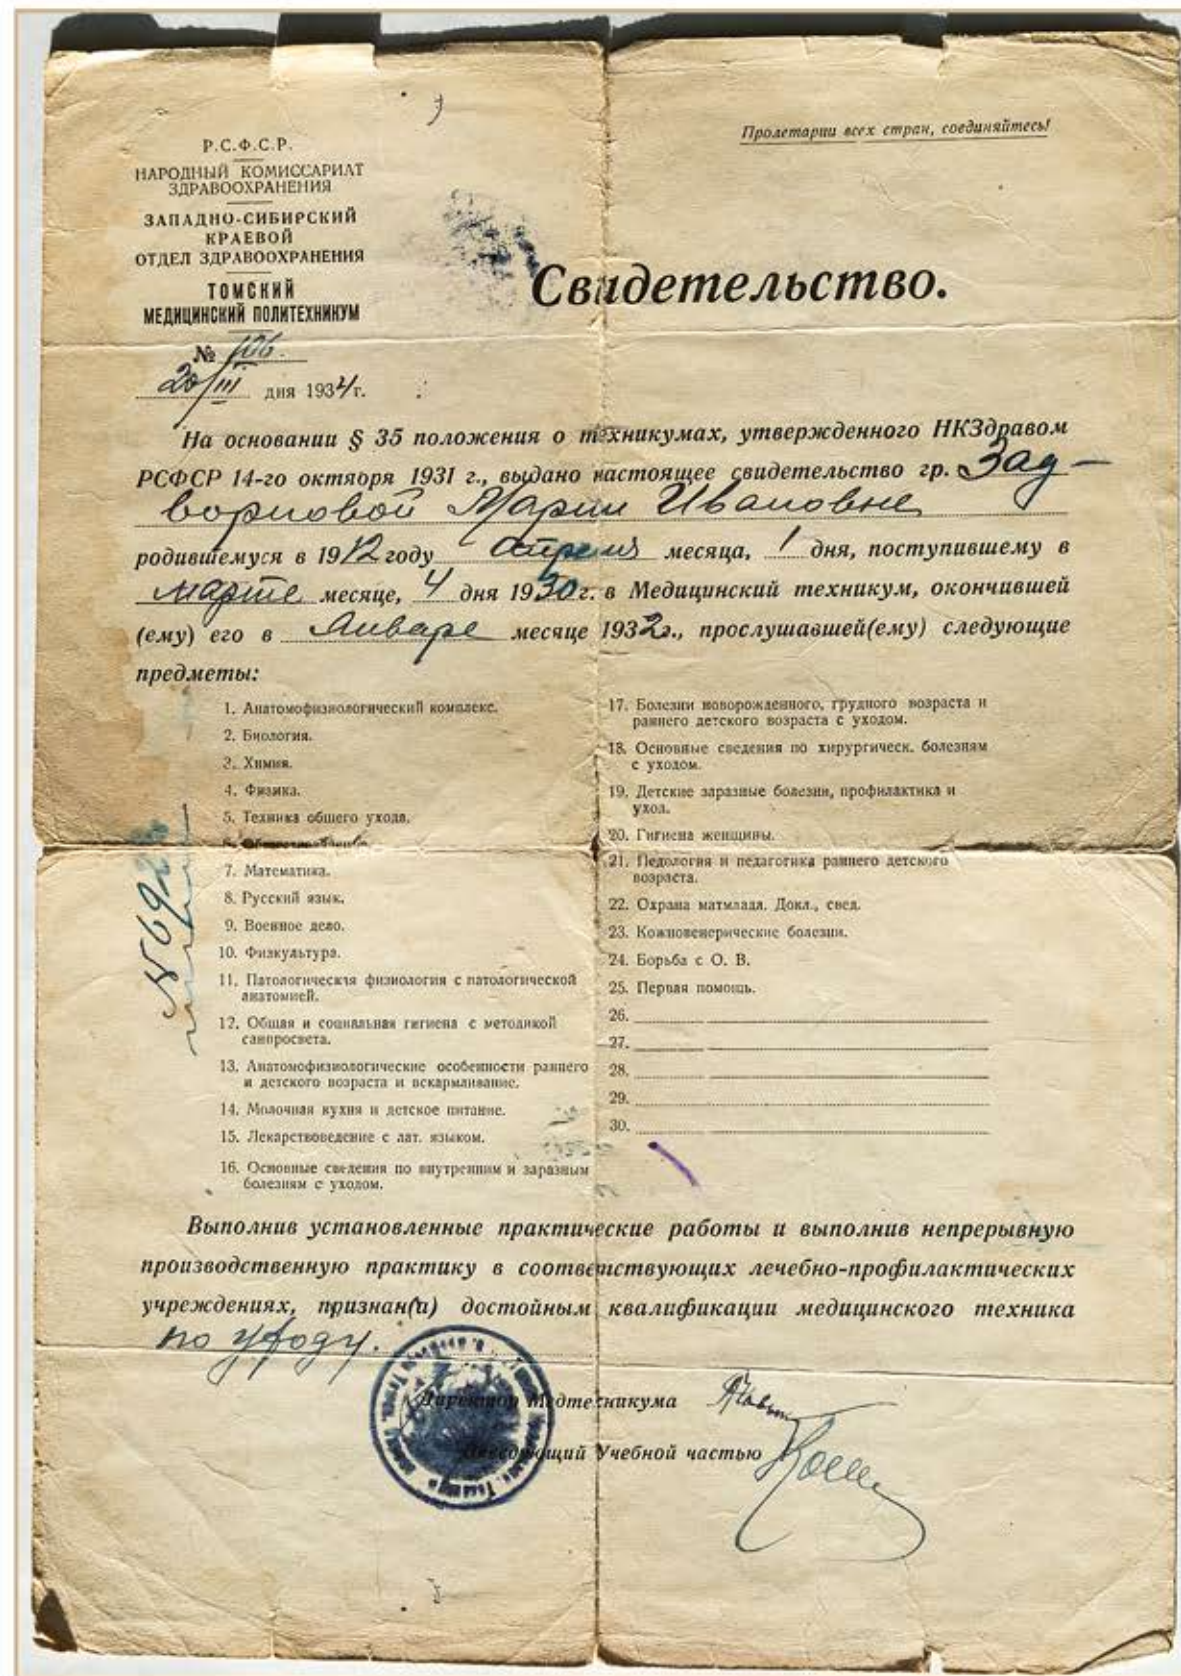 Пролетарии всех стран, соединяйтесь!
Р.С.Ф.С.Р.
НАРОДНЫЙ КОМИССАРИАТ
ЗДРАВООХРАНЕНИЯ
ЗАПАДНО-СИБИРСКИЙ
КРАЕВОЙ
ОТДЕЛ ЗДРАВООХРАНЕНИЯ
ТОМСКИЙ
МЕДИЦИНСКИЙ ПОЛИТЕХНИКУМ
№ 106.
20/III дня 1934 г.
Свидетельство.
На основании § 35 положения о техникумах, утвержденного НКЗдравом
РСФСР 14-го октяоря 1931 г., выдано настоящее свидетельство гр. Зад-
ворновой Марии Ивановне
родившемуся в 1912 году Апреля месяца, 1 дня, поступившему в
марте месяце, 4 дня 1930 г. в Медицинский техникум, окончившей
(ему) его в Январе месяце 1932 г., прослушавшей(ему) следующие
предметы:
1. Анатомофизиологический комплекс.
2. Биология.
3. Химия.
4. Физика.
5. Техника общего ухода.
6.
7. Математика.
8. Русский язык.
9. Военное дело.
10. Физкультура.
11. Патологическая физиология с патологической
анатомией.
12. Общая и социальная гигиена с методикой
санпросвета.
13. Анатомофизиологические особенности раннего
и детского возраста и вскармливание.
14. Молочная кухня и детское питание.
15. Лекарствоведение с лат. языком.
16. Основные сведения по внутренним и заразным
болезням с уходом.
17. Болезни новорожденного, грудного возраста и
раннего детского возраста с уходом.
18. Основные сведения по хирургическ. болезням
с уходом.
19. Детские заразные болезни, профилактика и
уход.
20. Гигиена женщины.
21. Педология и педагогика раннего детского
возраста.
22. Охрана матмлада. Докл., свед.
23. Кожновенерические болезни.
24. Борьба с О. В.
25. Первая помощь.
26.
27.
28.
29.
30.
Выполнив установленные практические работы и выполнив непрерывную
производственную практику в соответствующих лечебно-профилактических
учреждениях, признан(а) достойным квалификации медицинского техника
по уходу.
Директор Медтехникума
Заведующий Учебной частью